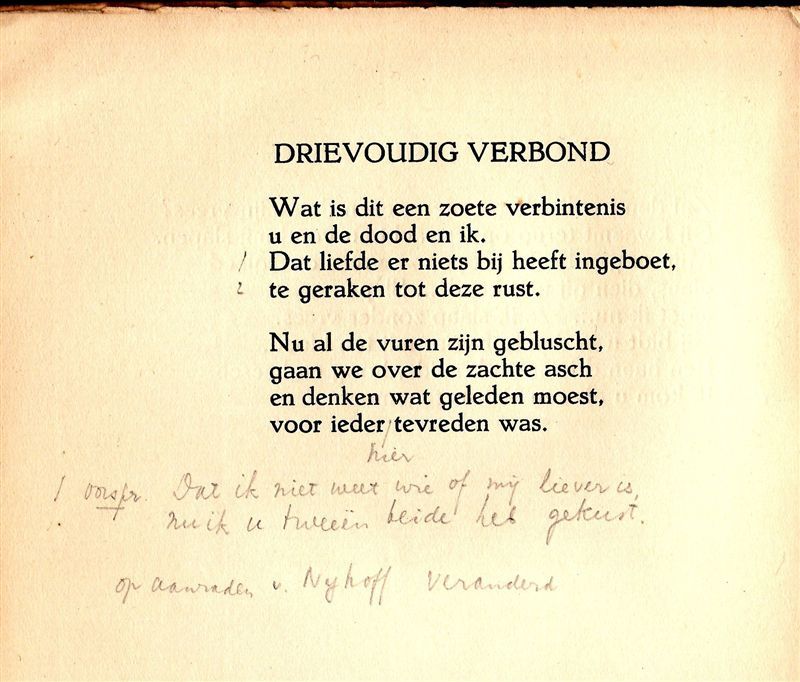 DRIEVOUDIG VERBOND
Wat is dit een zoete verbintenis
u en de dood en ik.
1 Dat liefde er niets bij heeft ingeboet,
2 te geraken tot deze rust.
Nu al de vuren zijn gebluscht,
gaan we over de zachte asch
en denken wat geleden moest,
voor ieder tevreden was.
hier
1 oorspr. Dat ik niet weet wie of mij liever is,
nu ik u tweeën beide heb gekust.
op aanraden v. Nyhoff veranderd